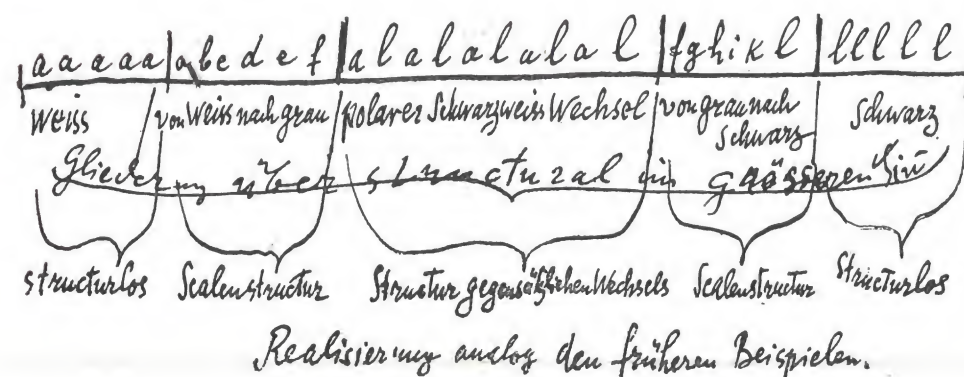 a a a a a | a b c d e f | a l a l a l a l a l | f g h i k l | l l l l l
weiss von Weiss nach grau polarer Schwarzweiss Wechsel von grau nach Schwarz Schwarz
Gliederung über structural im grösseren Sin
structurlos Scalenstructur Structur gegensätzlichen Wechsels Scalenstructur Structurlos
Realisierung analog den früheren Beispielen.